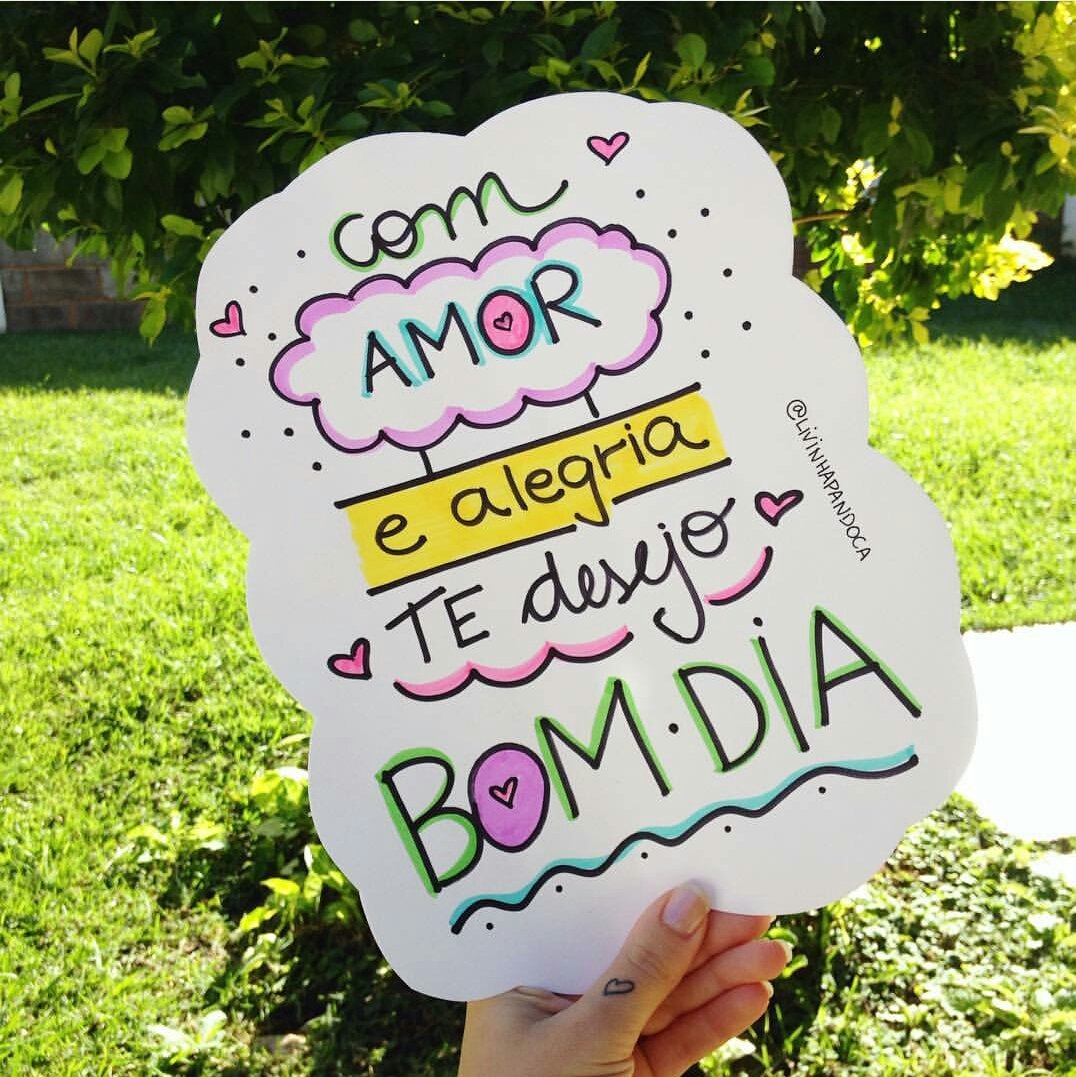 com
AMOR
e alegria
TE desejo
BOM·DIA
@LIVINHAPANDOCA